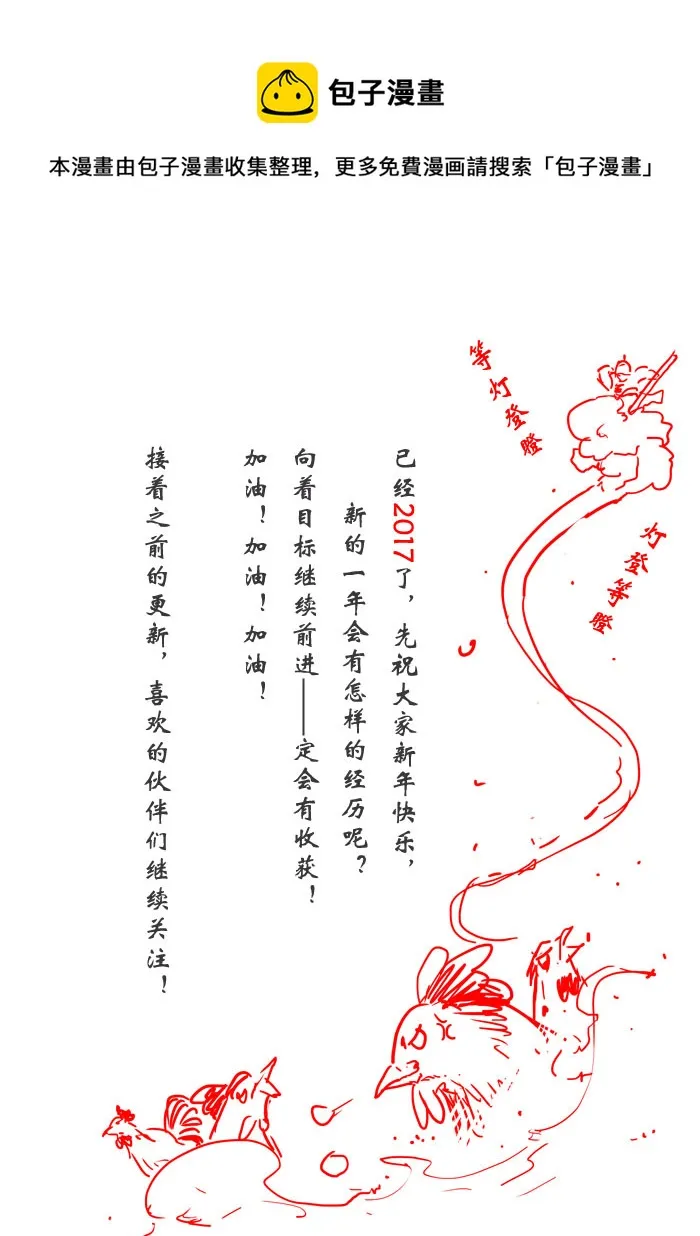 包子漫畫
本漫畫由包子漫畫收集整理，更多免費漫画請搜索「包子漫畫」
等灯登瞪
灯登等瞪
已经2017了，先祝大家新年快乐，
新的一年会有怎样的经历呢？
向着目标继续前进——定会有收获！
加油！加油！加油！
接着之前的更新，喜欢的伙伴们继续关注！